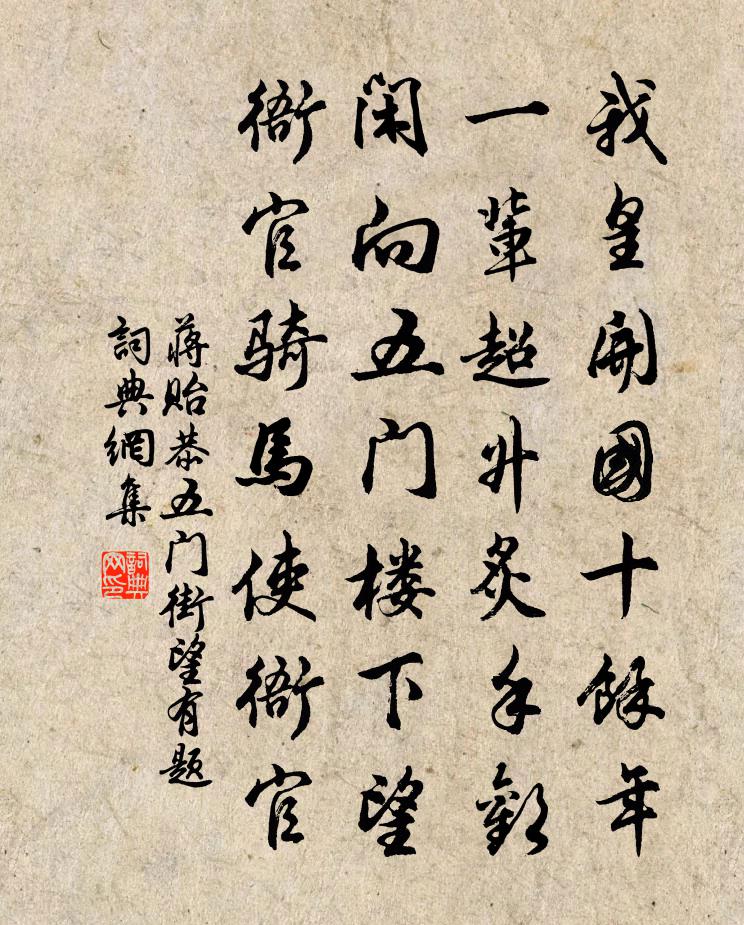 我皇開國十餘年
一輩超升炙手歡
閑向五门楼下望
衙官騎馬使衙官
蔣貽恭五门街望有题
詞典網集
詞典网印